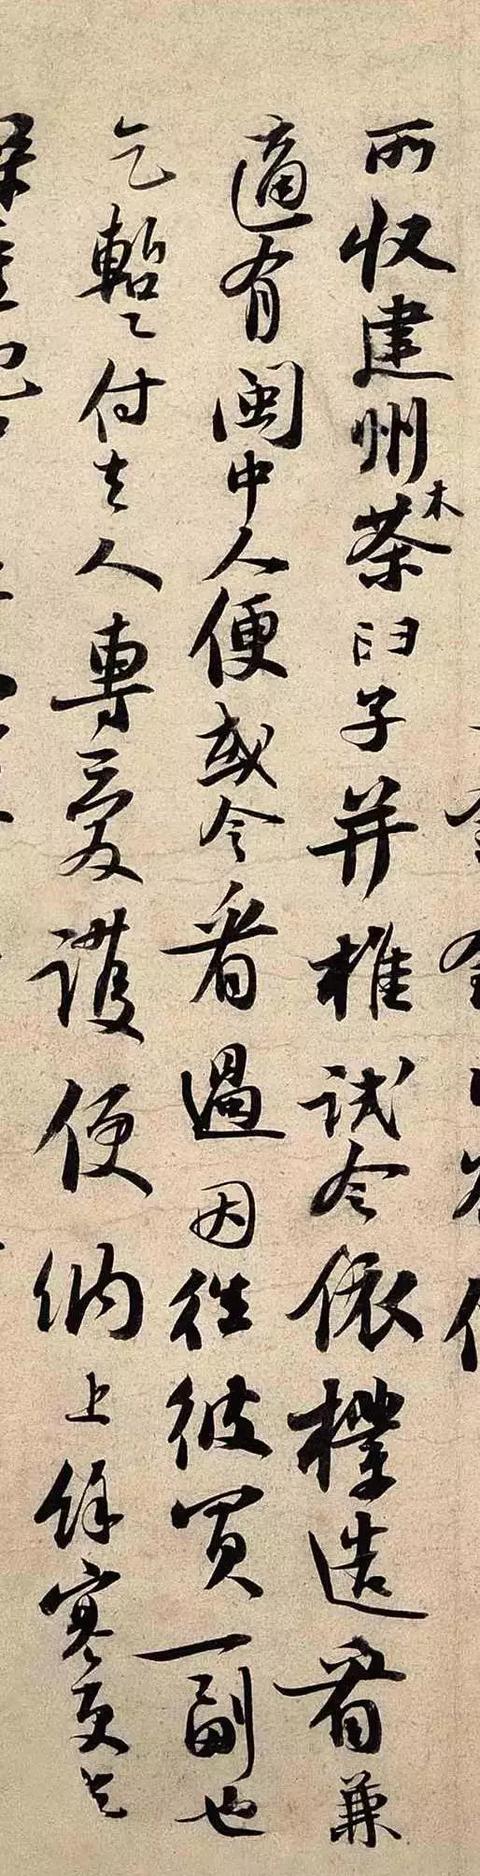 所収建州木茶臼子并椎試令依樣造看兼
適有閩中人便或令看過因往彼買一副也
乞暫付去人專愛護便納上餘寒更乞